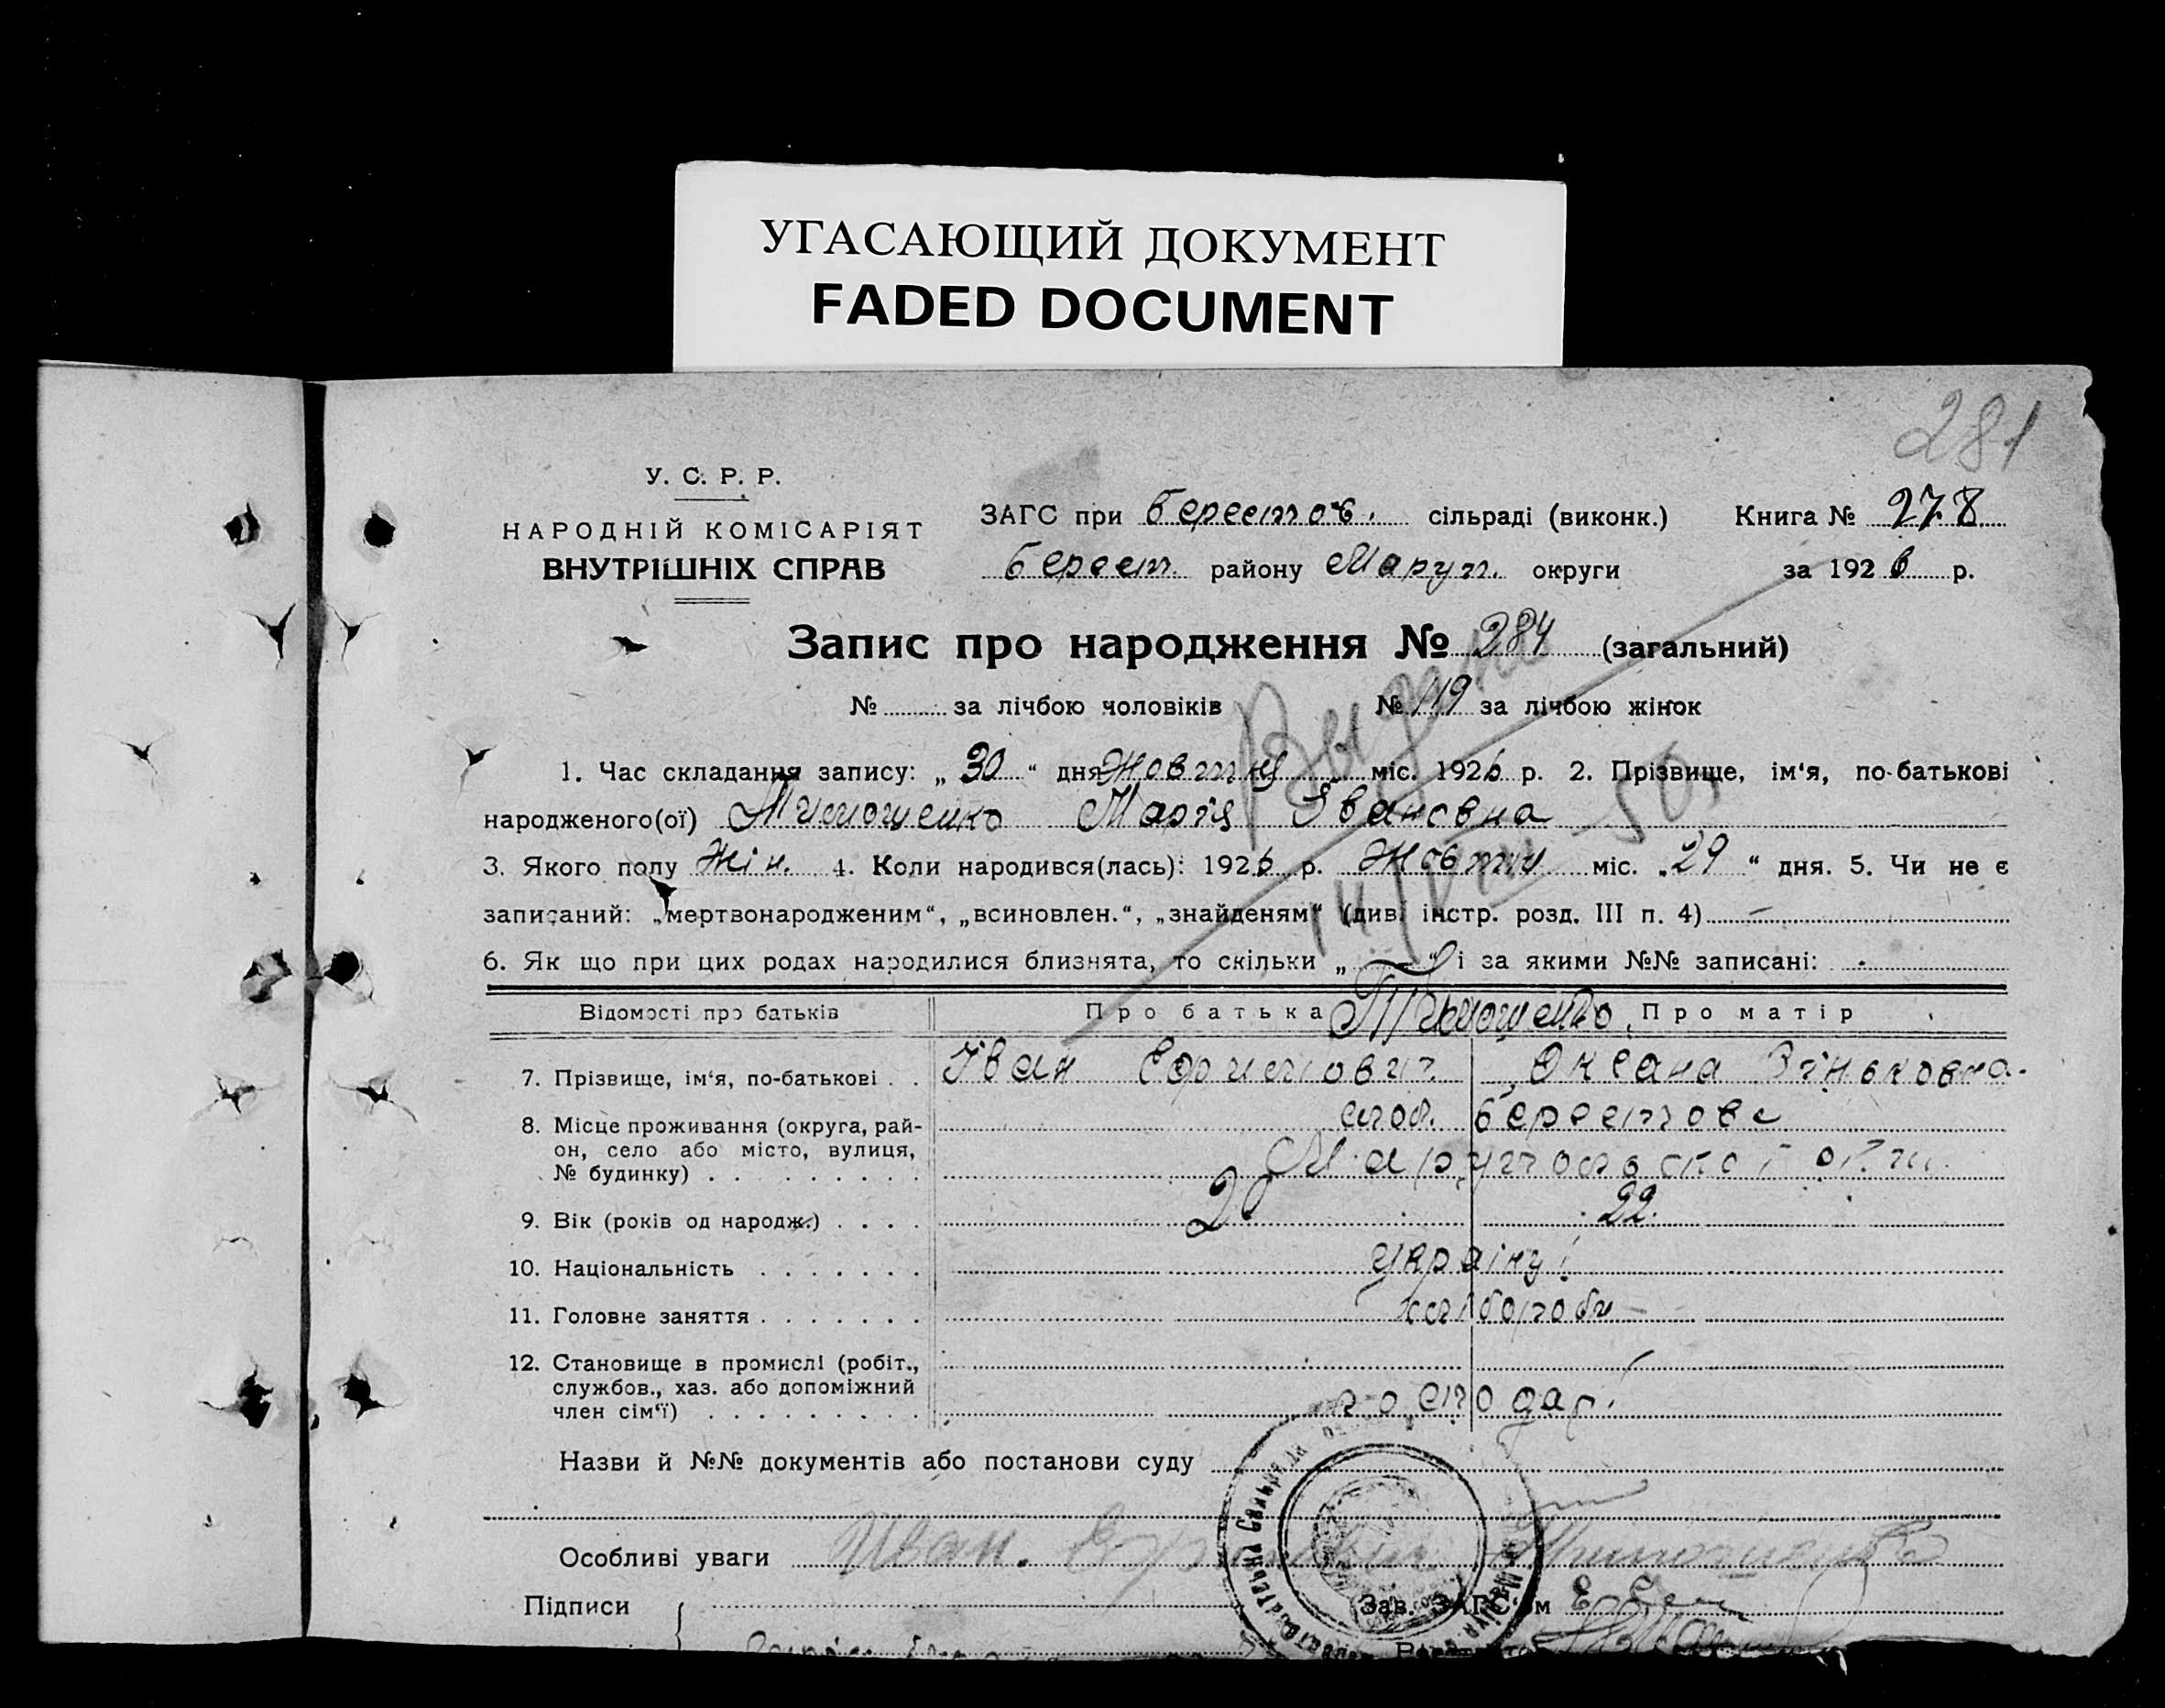 УГАСАЮЩИЙ ДОКУМЕНТ
FADED DOCUMENT
281
У. С. Р. Р.
НАРОДНІЙ КОМІСАРІЯТ
ВНУТРІШНІХ СПРАВ
ЗАГС при Берестов. сільраді (виконк.) Книга № 278
Берест. району Маруп. округи за 1926 р.
Запис про народження № 284 (загальний)
№ за лічбою чоловіків № 119 за лічбою жінок
1. Час складання запису: „30“ дня Жовтня міс. 1926 р. 2. Прізвище, ім‘я, по-батькові
народженого(ої) Тимошенко Марія Івановна
3. Якого полу Жін. 4. Коли народився(лась): 1926 р. Жовтня міс. „29“ дня. 5. Чи не є
записаний: „мертвонародженим“, „всиновлен.“, „знайденям“ (див. інстр. розд. III п. 4) —
6. Як що при цих родах народилися близнята, то скільки „—“ і за якими №№ записані:
Выдано
14/VIII 50
Відомості про батьків Про батька Про матір
Тимошенко
7. Прізвище, ім‘я, по-батькові Іван Оксана
8. Місце проживання (округа, рай-
он, село або місто, вулиця,
№ будинку)
Берестове
9. Вік (років од народж.) 22.
10. Національність україн
11. Головне заняття хліборобі
12. Становище в промислі (робіт.,
службов., хаз. або допоміжний
член сім‘ї)
господар.
Назви й №№ документів або постанови суду
Особливі уваги Иван. Тимошенко
Підписи
Зав. ЗАГС‘ом